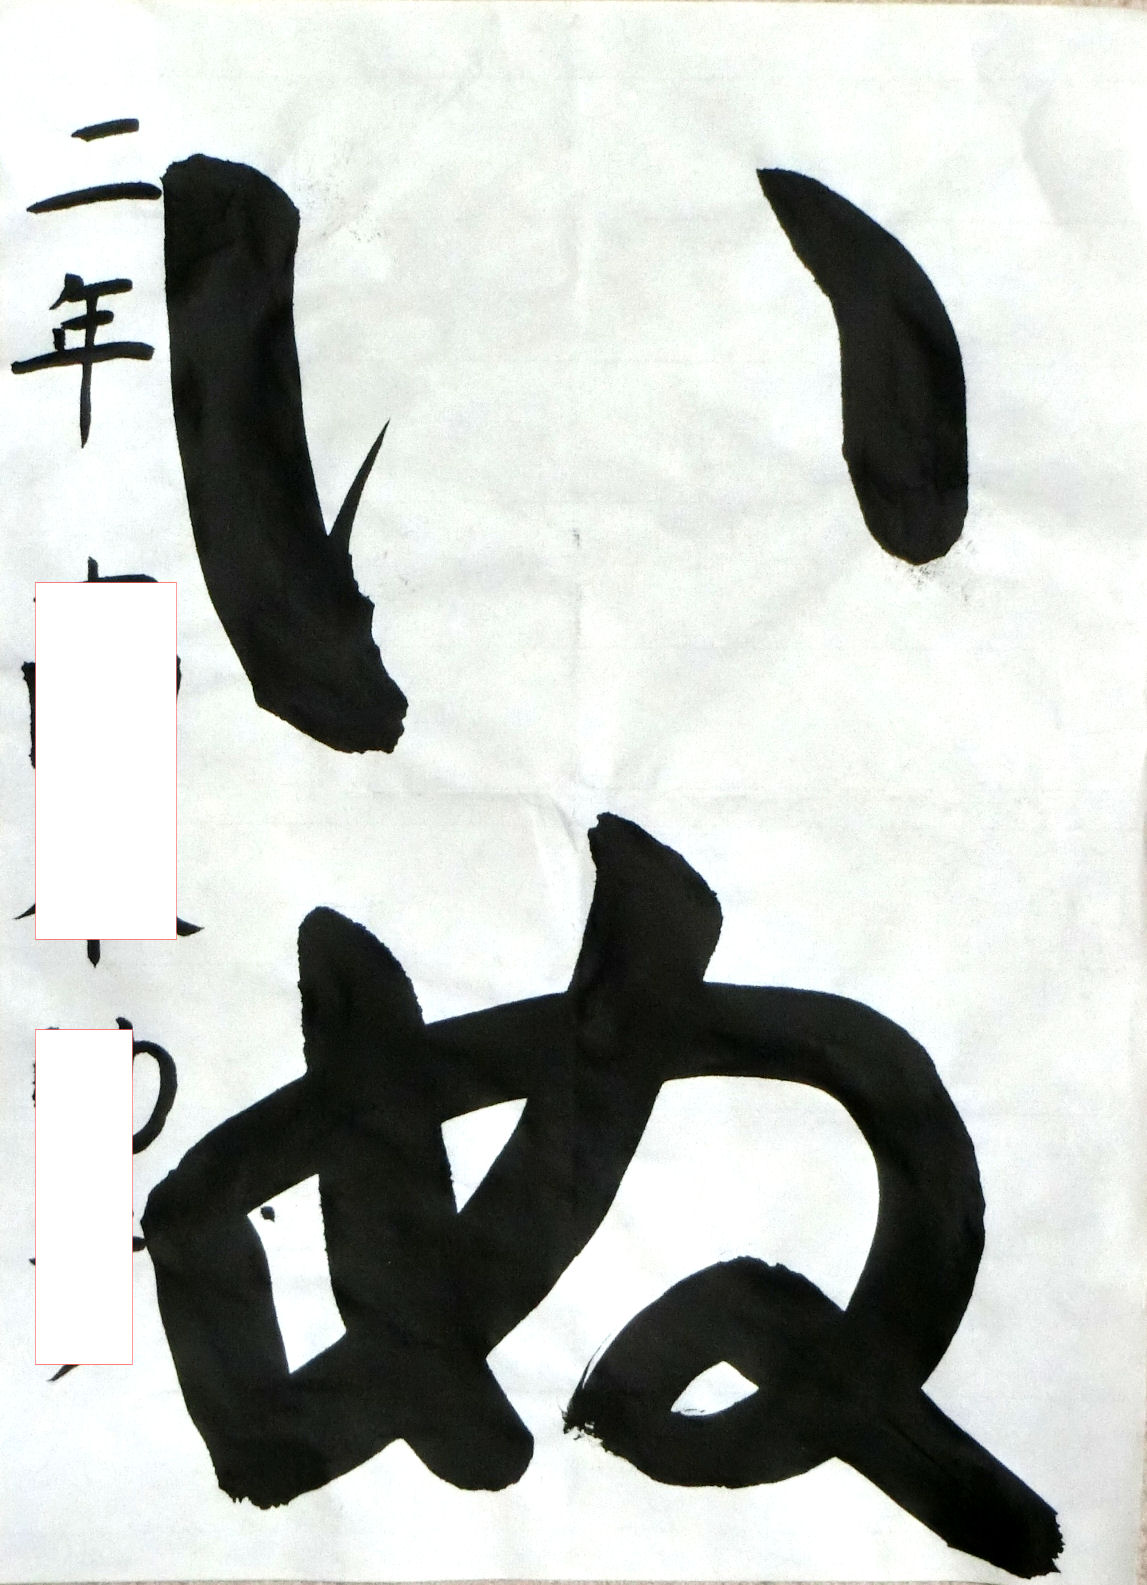 いぬ
二年